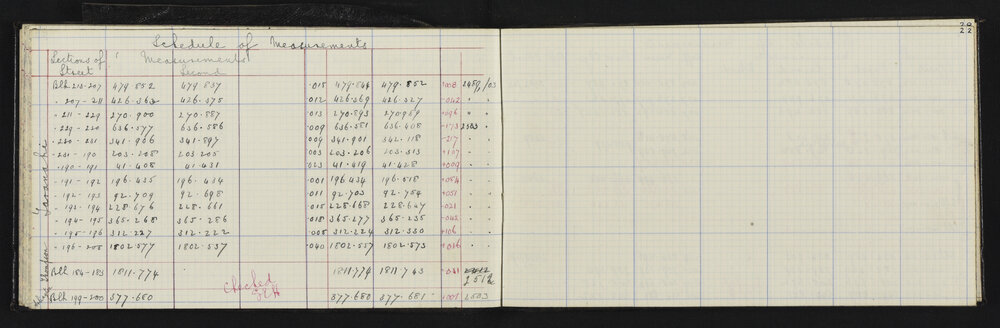 Schedule of Measurements
Sections of Street Measurements Second
Blk 213-207 479.852 479.837 .015 479.844 479.852 +.008 2459/03
" 207-211 426.363 426.375 .012 426.369 426.327 -.042 " "
" 211-229 270.900 270.887 .013 270.893 270.989 +.096 " "
" 229-220 636.577 636.586 .009 636.581 636.408 -.173 2503 "
" 220-231 341.906 341.897 .009 341.901 342.118 +.217 " "
" 231-190 203.208 203.205 .003 203.206 203.313 +.107 " "
" 190-191 41.408 41.431 .023 41.419 41.428 +.009 " "
" 191-192 196.435 196.434 .001 196.434 196.518 +.084 " "
" 192-193 92.709 92.698 .011 92.703 92.754 +.051 " "
" 193-194 228.676 228.661 .015 228.668 228.647 -.021 " "
" 194-195 365.268 365.286 .018 365.277 365.235 -.042 " "
" 195-196 312.227 312.222 .005 312.224 312.330 +.106 " "
" 196-208 1802.577 1802.537 .040 1802.557 1802.573 +.016 " "
Blk 184-183 1811.774 1811.774 1811.743 -.031
Checked
Blk 199-200 377.680 377.680 377.681 +.001 2503
Taranaki
22